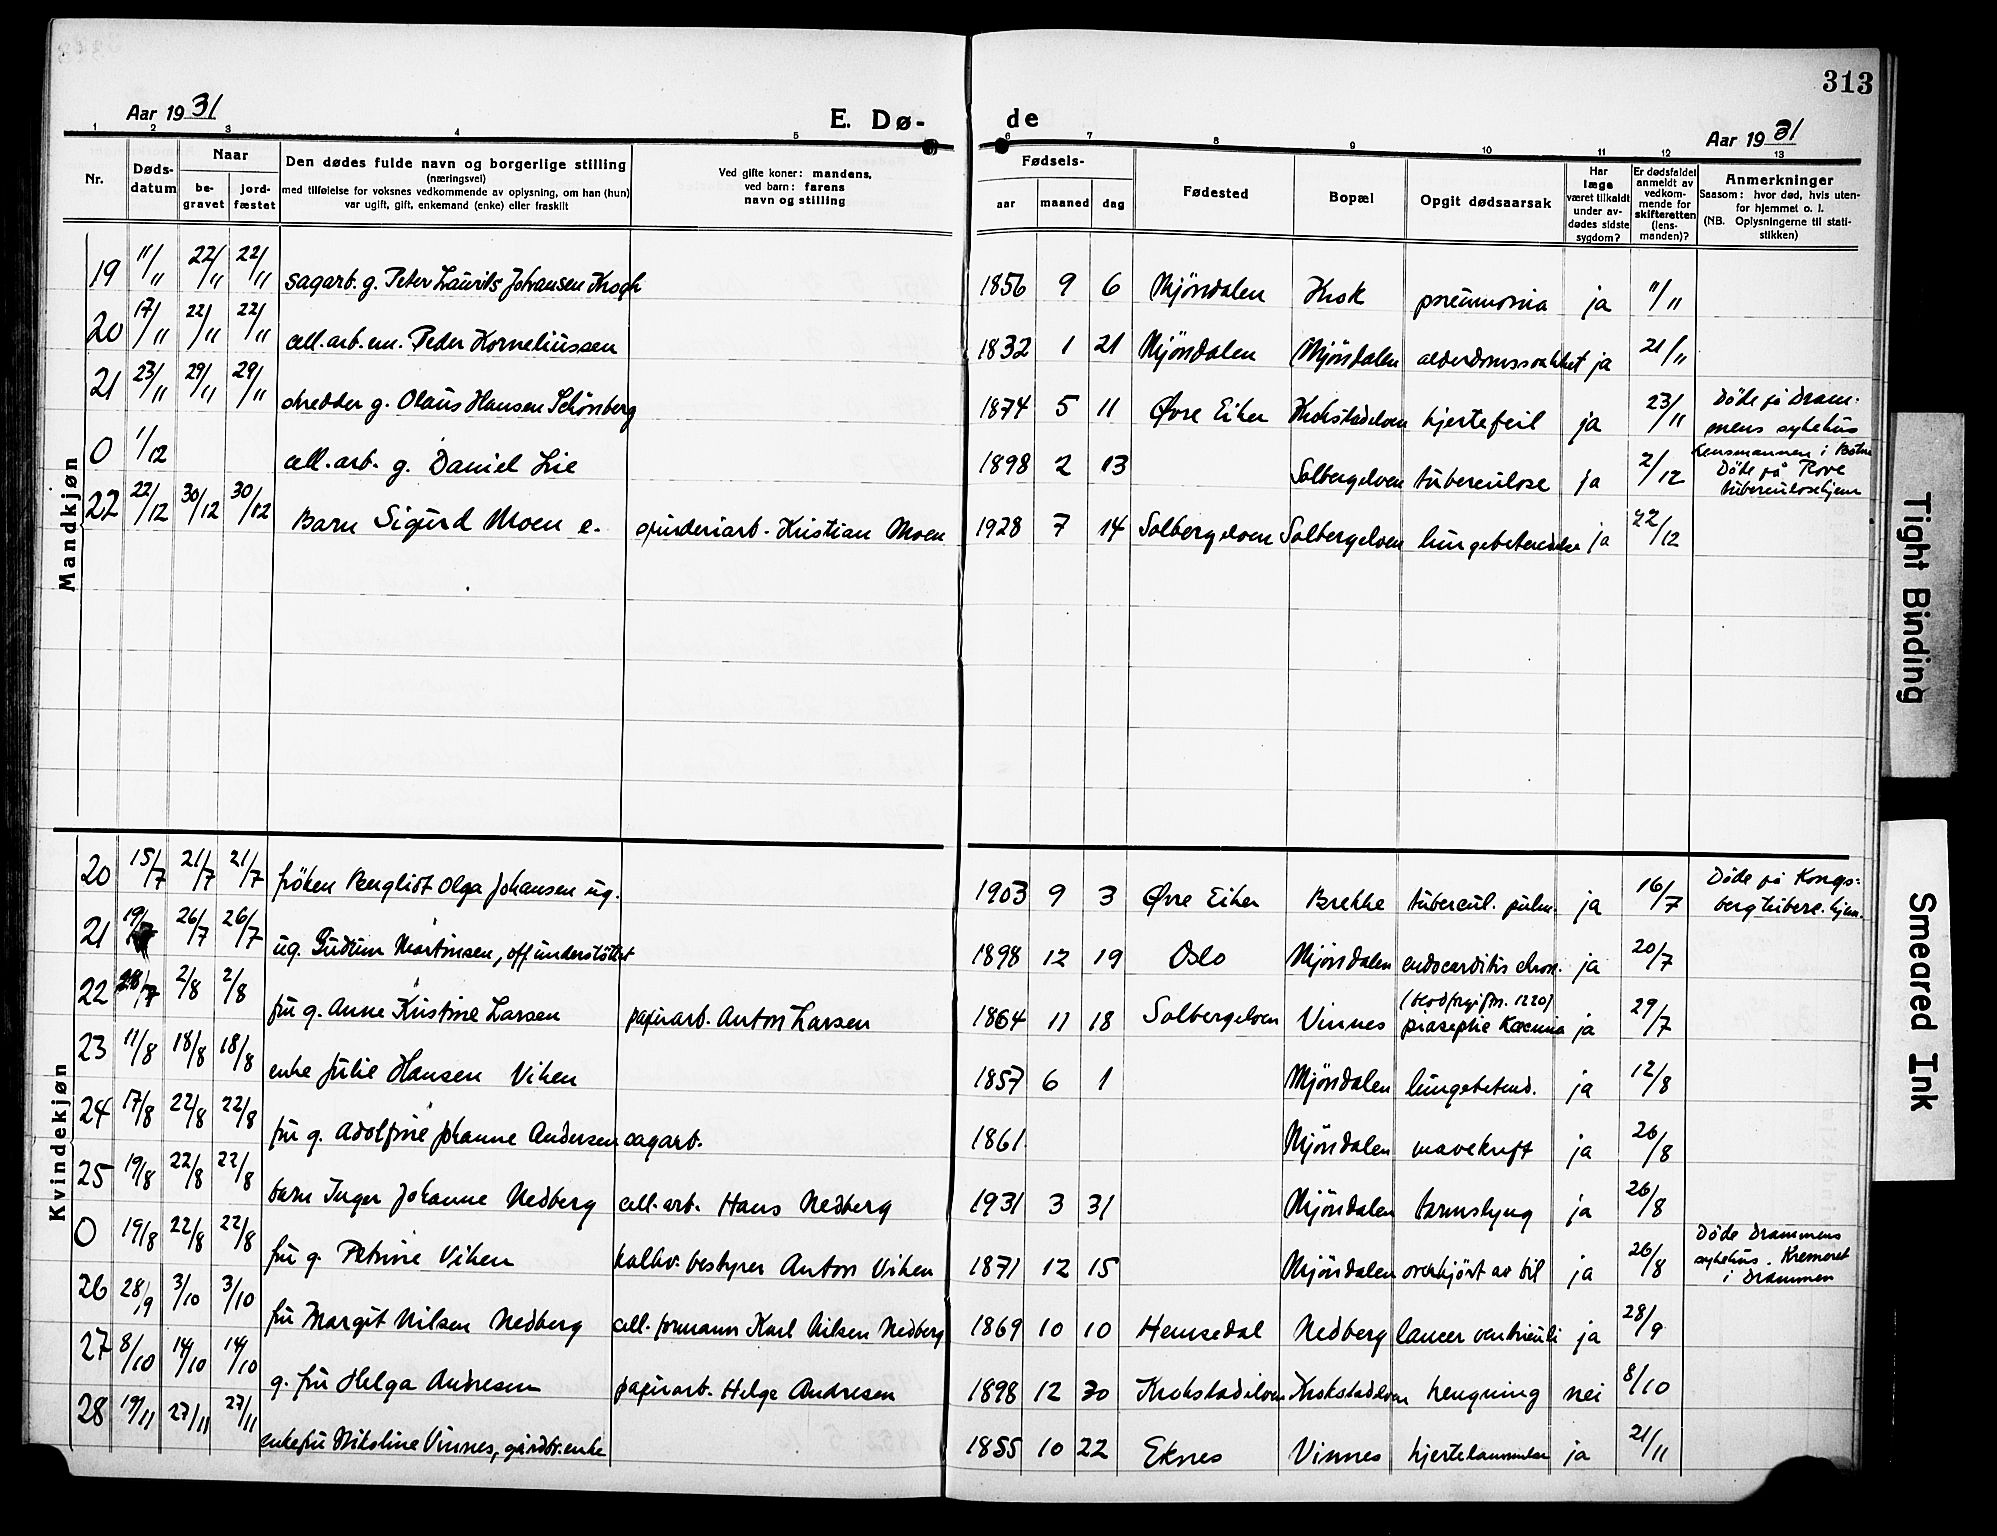 313
Aar 1931
E. Dø-
de
Aar 1931
1 2 3 4 5 6 7 8 9 10 11 12 13
Nr.
Døds-
datum
Naar
be-
gravet
jord-
fæstet
Den dødes fulde navn og borgerlige stilling
(næringsvei)
med tilføielse for voksnes vedkommende av oplysning, om han (hun)
var ugift, gift, enkemand (enke) eller fraskilt
Ved gifte koner: mandens,
ved barn: farens
navn og stilling
Fødsels-
aar maaned dag
Fødested
Bopæl
Opgit dødsaarsak
Har
læge
været tilkaldt
under av-
dødes sidste
sygdom?
Er dødsfaldet
anmeldt av
vedkom-
mende for
skifteretten
(lens-
manden)?
Anmerkninger
Saasom: hvor død, hvis uten-
for hjemmet o. l.
(NB. Oplysningerne til stati-
stikken)
Mandkjøn
19 11/11 22/11 22/11 sagarb. g. Peter Laurits Johansen Krogh 1856 9 6 Mjöndalen Krok pneumonia ja 11/11
20 17/11 22/11 22/11 cell. arb. em. Peder Korneliussen 1832 1 21 Mjöndalen Mjöndalen alderdomssvakhet ja 21/11
21 23/11 29/11 29/11 skredder g. Olaus Hansen Schönberg 1874 5 11 Øvre Eiker Krokstadelven hjertefeil ja 23/11 Døde på Dram-
mens sykehus
0 1/12 cell. arb. g. Daniel Lie 1898 2 13 Solbergelven tuberculose ja 2/12 Lensmannen i Botne
Døde på Rove
tuberculosehjem
22 22/12 30/12 30/12 Barn Sigurd Moen e. spinderiarb. Kristian Moen 1928 7 14 Solbergelven Solbergelven lungebetendelse ja 22/12
Kvindekjøn
20 15/7 21/7 21/7 fröken Bergliot Olga Johansen ug. 1903 9 3 Øvre Eiker Brekke tubercul. pulm. ja 16/7 Døde på Kongs-
berg tuberc. hjem.
21 19/7 26/7 26/7 ug. Gudrun Martinsen, off understöttet 1898 12 19 Oslo Mjöndalen endocarditis chron. ja 20/7
22 28/7 2/8 2/8 fru g. Anne Kristine Larsen papirarb. Anton Larsen 1864 11 18 Solbergelven Vinnes (blodforgiftn. 1220)
ja 29/7
23 11/8 18/8 18/8 enke Julie Hansen Viken 1857 6 1 Mjöndalen lungebetend. ja 12/8
24 17/8 22/8 22/8 fru g. Adolfine Johanne Andersen sagarb. 1861 Mjöndalen mavekreft ja 26/8
25 19/8 22/8 22/8 barn Inger Johanne Nedberg cell. arb. Hans Nedberg 1931 3 31 Mjöndalen tarmslyng ja 26/8
0 19/8 22/8 22/8 fru g. Petrine Viken kalkv. bestyrer Anton Viken 1871 12 15 Mjöndalen overkjört av bil ja 26/8 Døde Drammens
sykehus. Kremeret
i Drammen
26 28/9 3/10 3/10 fru Margit Nilsen Nedberg cell. formann Karl Nilsen Nedberg 1869 10 10 Hemsedal Nedberg cancer ventriculi ja 28/9
27 8/10 14/10 14/10 g. fru Helga Andresen papirarb. Helge Andresen 1898 12 30 Krokstadelven Krokstadelven hengning nei 8/10
28 19/11 27/11 27/11 enkefru Nikoline Vinnes, gårdbr.enke 1855 10 22 Eknes Vinnes hjertelammelse ja 21/11
Tight Binding
Smeared Ink